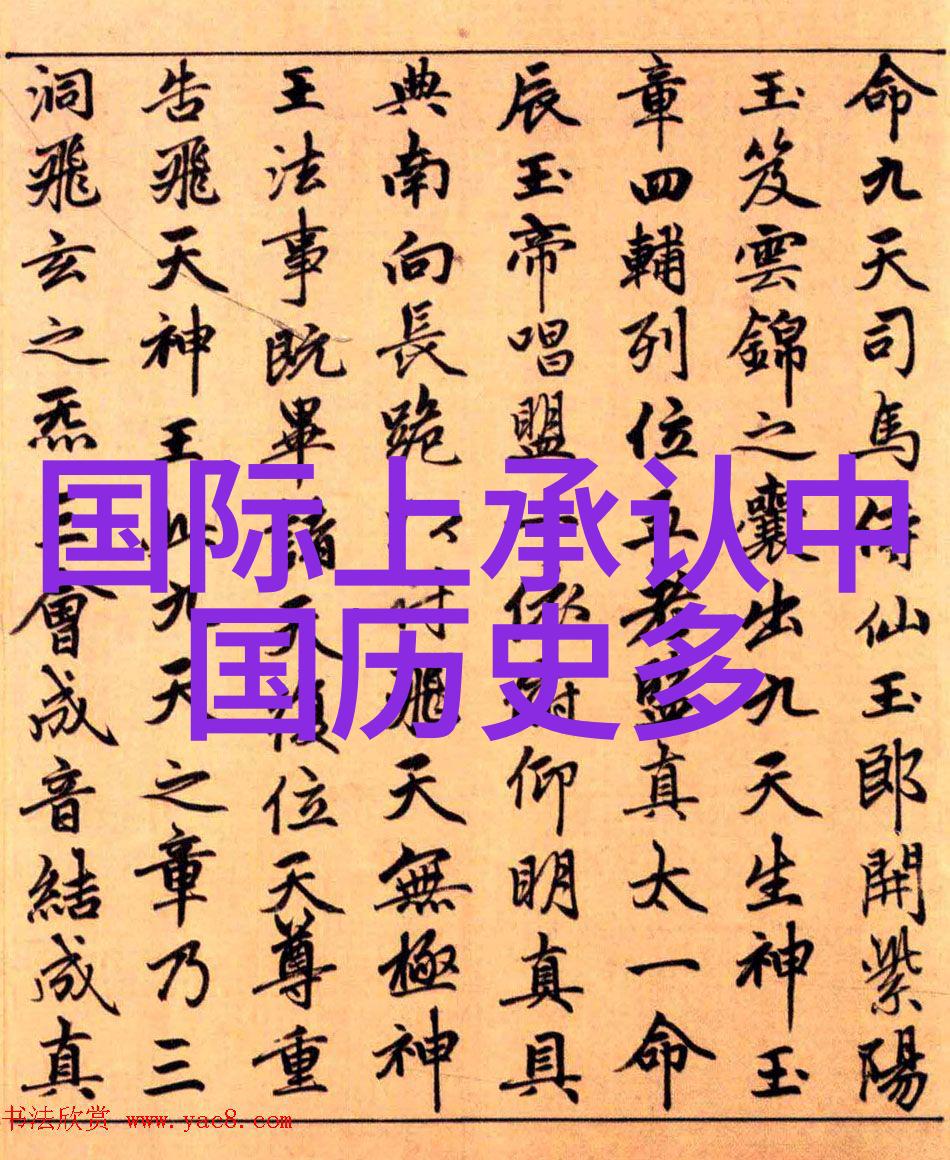 命九天司馬侍仙玉郎開紫陽
玉笈雲錦之囊出九天生神玉
章四輔列位五老監真太一命
辰玉帝唱盟
仰明真具
典南向長跪
飛天無極神
王法事既畢諸天復位天尊重
告飛天神王
九天之章乃三
洞飛玄之炁三會成音結成真
国际上承认中
国历史多
书法欣赏 www.yac8.com